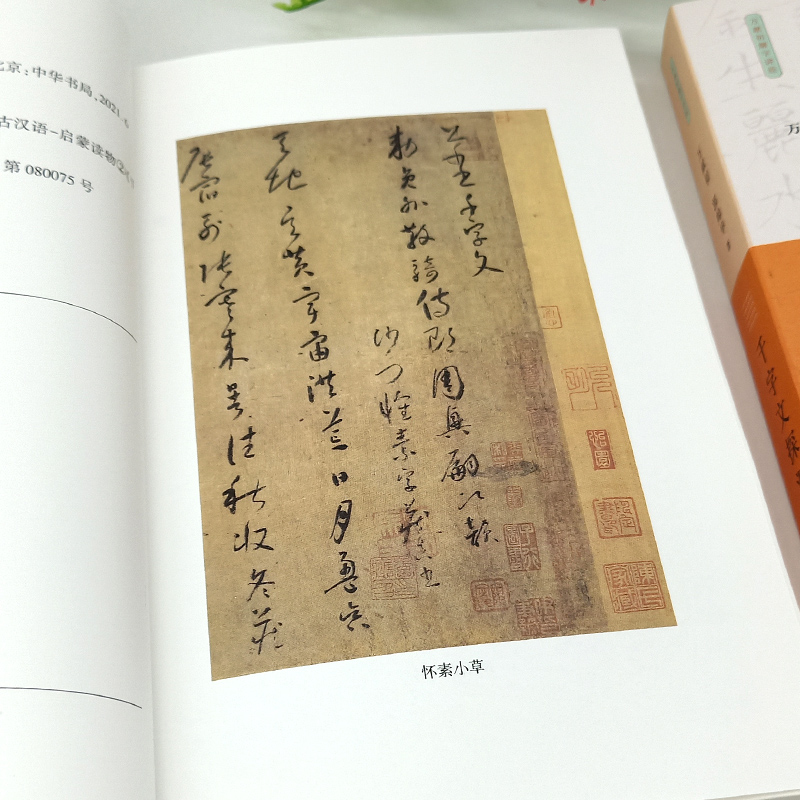 京：中华书局，2021.6
古汉语-启蒙读物
第 080075 号
千字文
勅員外散騎侍郎周興嗣次韻
沙門懷素字藏真書
天地玄黃宇宙洪荒日月盈昃
辰宿列張寒來暑往秋收冬藏
怀素小草
万
千字文探